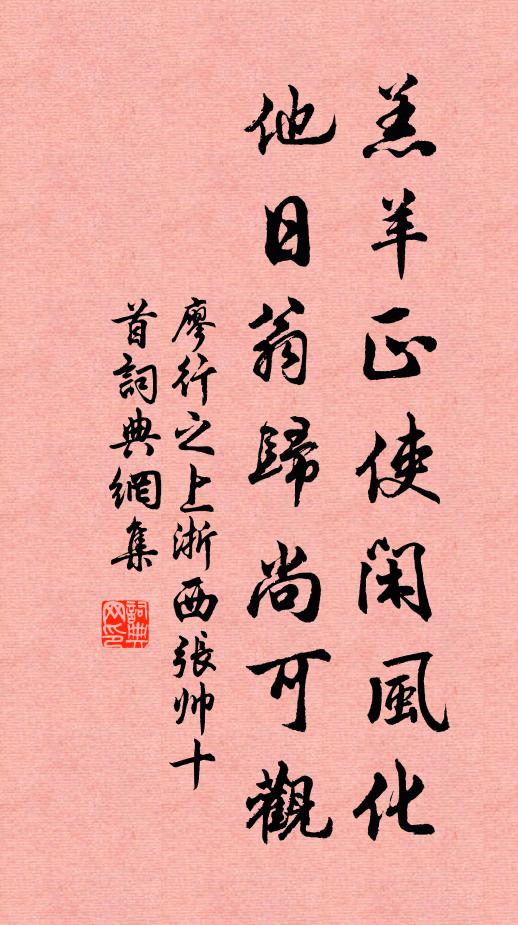 羔羊正使閑風化
他日翁歸尚可觀
廖行之上浙西張帅十
首詞典網集
詞典網印